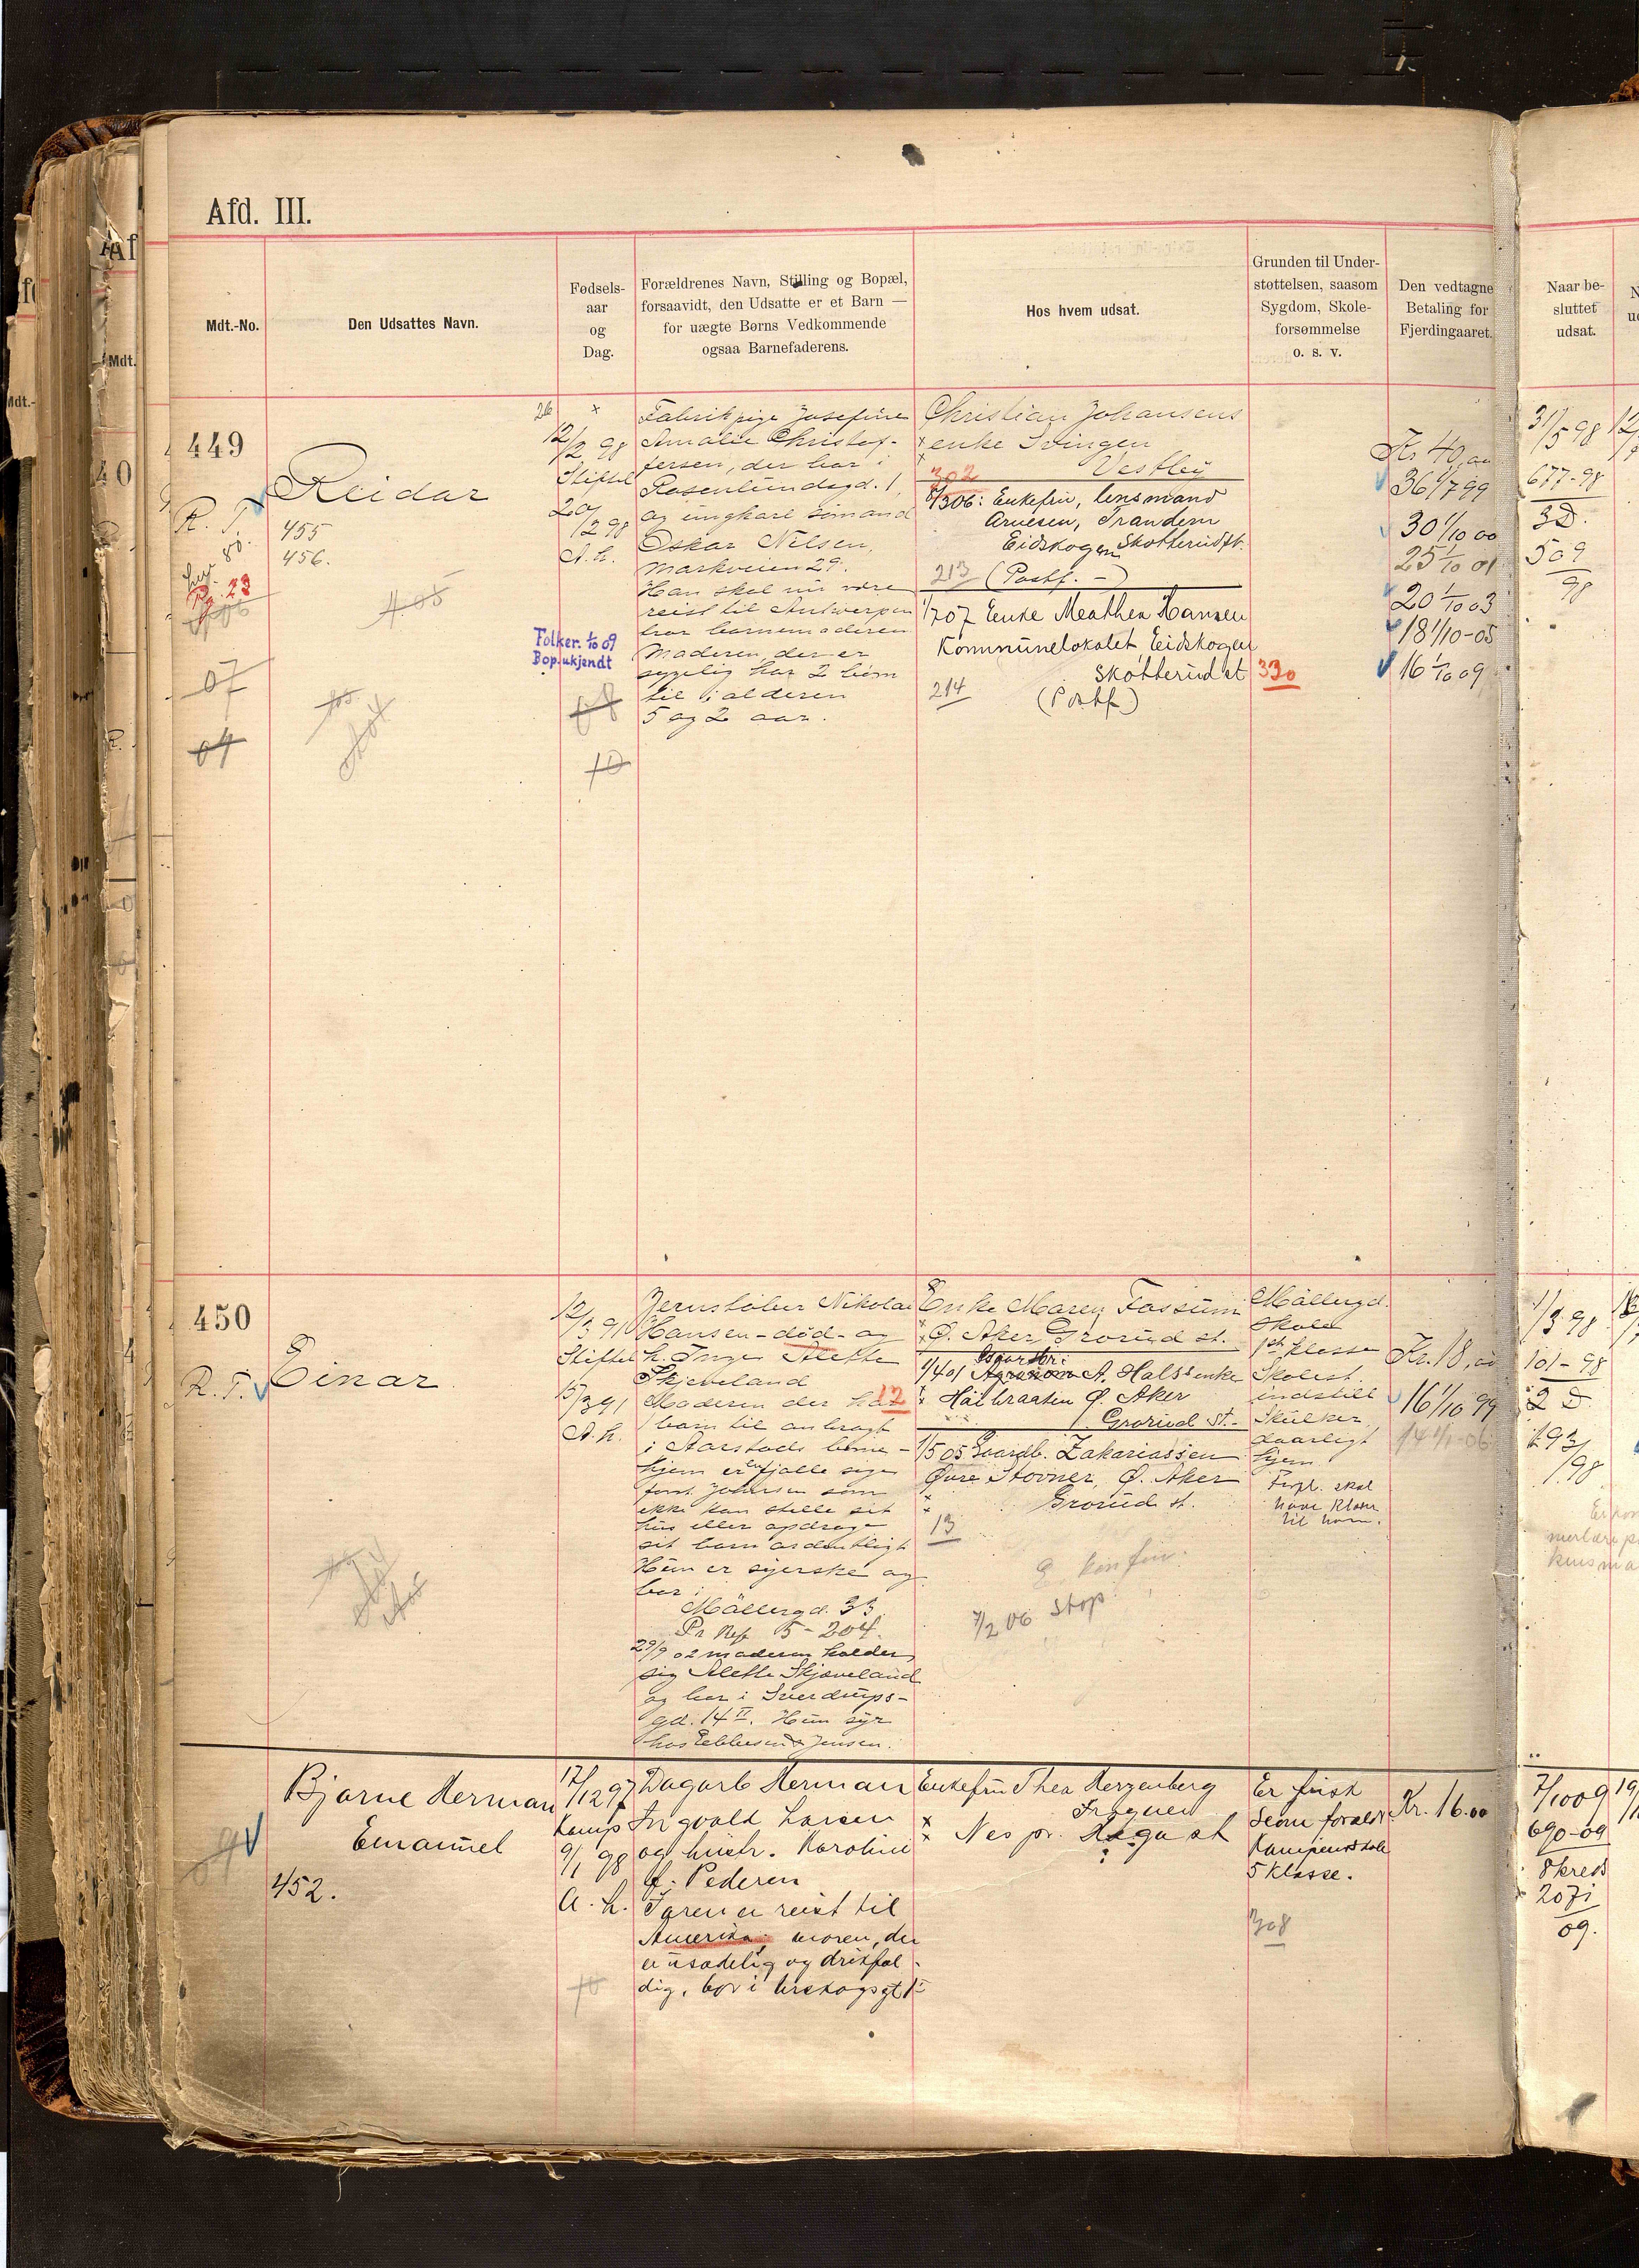 Afd. III.
Mdt.-No.
Den Udsattes Navn.
Fødsels-
aar
og
Dag.
Forældrenes Navn, Stilling og Bopæl,
forsaavidt, den Udsatte er et Barn —
for uægte Børns Vedkommende
ogsaa Barnefaderens.
Hos hvem udsat.
Grunden til Under-
støttelsen, saasom
Sygdom, Skole-
forsømmelse
o. s. v.
Den vedtagne
Betaling for
Fjerdingaaret.
Naar be-
sluttet
udsat.
449
R. T.
Reidar
455
456.
07
12/2 98
Stiftel
20/2 98
A. h.
Folker. 1/10 09
Bop. ukjendt
10
Fabrikpige Josefine
Amalie Christof-
fersen, der bor i
Rosenlundsgd. 1,
og ungkarl sømand
Oskar Nilsen,
Markveien 29.
Han skal nu være
reist til Antwerpen
bor barnemoderen
Moderen der er
sygelig har 2 børn
til i alderen
5 og 2 aar.
Christian Johansens
enke Svingen
Vestby
302
1/3 06: Enkefru, lensmand
Arnesen, Trandem
Eidskogen Skotterud st.
213 (Postf. -)
1/7 07 Enke Meathea Hansen
Kommunelokalet, Eidskogen
Skotterud st
214 (Postf.)
330
Kr 40,00
36 1/7 99
30 1/10 00
25 1/10 01
20 1/10 03
18 1/10-05
16 1/10 09
31/5 98
677-98
3 D.
509
98
450
R. T.
Einar
12/3 91
Stiftel
15/3 91
A. h.
Jernstøber Nikolai
Hansen - død - og
h. Inger Alette
Skjæveland
Moderen der har
barn til anbragt
i Aarstads barne-
hjem er
som
ikke kan stelle sit
hus eller opdrage
sit barn ordentligt
Hun er syerske og
bor i
Møllergd. 33
Pr Rep 5-204.
29/9 02 moderen kalder
sig Alette Skjæveland
og bor i Sverdrups-
gd. 14 II. Hun syr
hos Ebbesen & Jensen.
12
Enke Maren Fossum
Ø. Aker Grorud st.
1/4 01 Gaardbr. A. Hals enke
Høibraaten Ø. Aker
Grorud St.-
1/5 05 Gaardb. Zakariassen
Øvre Stovner, Ø. Aker
Grorud st.
13
7/2 06 Stop
Møllergd.
Skole
1st klasse
Skolest.
indstill
Skulker
daarligt
hjem.
Forpl. skal
have klær
til ham.
Kr. 18,00
16 1/10 99
14 1/1-06
1/3 98
101-98
2 D.
193/98
Bjarne Herman
Emanuel
452.
17/12 97
Kamp
9/1 98
A. h.
10
Dagarb Herman
Ingvald Larsen
og hustr. Karoline
f. Pedersen
Faren er reist til
Amerika; moren, der
er usædelig og drikfæl-
dig, bor i Urskogsgt 1
Enkefru Thea Herzenberg
Frogner
Nes pr. Haga st
Er frisk
Som forældr.
Kampens skole
5 klasse.
308
Kr. 16.00
7/10 09
690-09
8 kreds
207i
09.